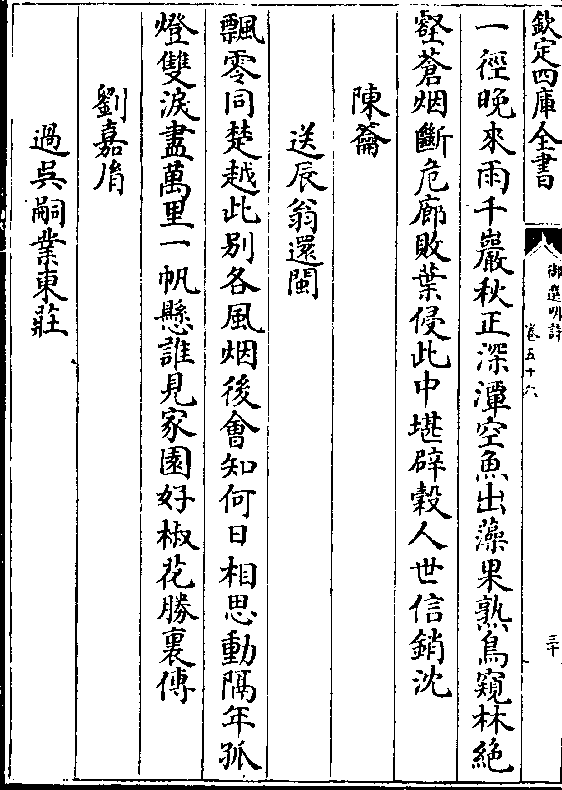 欽定四庫全書
御選明詩
卷五十六
三十
一徑晚來雨千巖秋正深潭空魚出藻果熟鳥窺林絶
壑蒼烟斷危廊敗葉侵此中堪辟穀人世信銷沈
陳籥
送辰翁還閩
飄零同楚越此别各風烟後會知何日相思動隔年孤
燈雙淚盡萬里一帆懸誰見家園好椒花勝裏傳
劉嘉㣧
過吳嗣業東莊